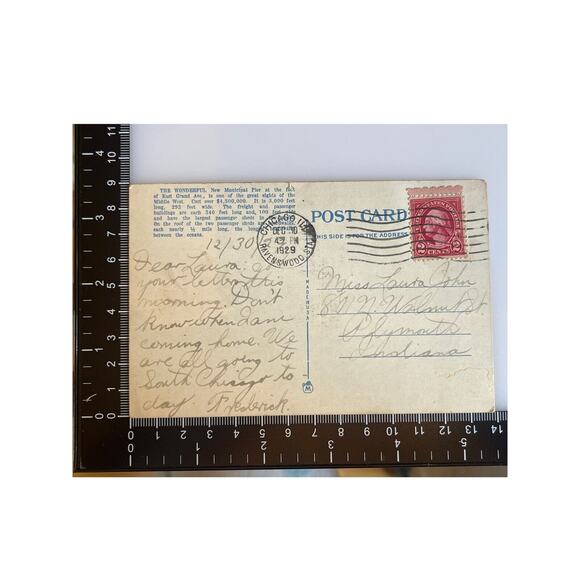 THE WONDERFUL New Municipal Pier at the foot
of East Grand Ave., is one of the great sights of the
Middle West. Cost over $4,500,000. It is 3,000 feet
long, 292 feet wide. The freight and passenger
buildings are each 340 feet long and 100 feet
and have the largest passenger sheds in the
On the roof of the two passenger sheds are
each nearly ½ mile long, the long
between the oceans.
12/30
Dear Laura.
your letter this
morning. Don't
know when I am
coming home. We
are all going to
South Chicago to
day. Frederick.
CHICAGO ILL
DEC 30
4 PM
1929
RAVENSWOOD STA
POST CARD
THIS SIDE IS FOR THE ADDRESS
MADE IN USA
2 CENTS 2
Miss Laura John
N. Walnut St
Plymouth
Indiana
0 1 2 3 4 5 6 7 8 9 10 11
0 1 2 3 4
0 1 2 3 4 5 6 7 8 9 10 11 12 13 14
0 1 2 3 4 5